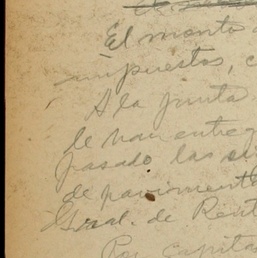 El monto
impuestos, c
A la junta
de han entreg
pasado las su
de pavimento
Gral. de Rent
Por capita